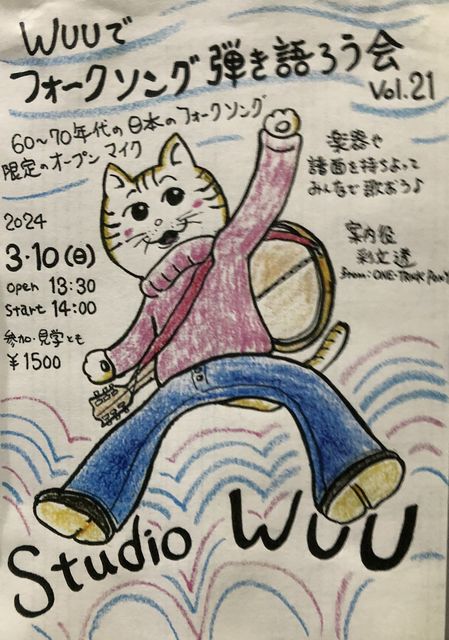 WUUで
フォークソング弾き語ろう会
Vol.21
60〜70年代の日本のフォークソング
限定のオープンマイク
楽器や
譜面を持ちよって
みんなで歌おう♪
2024
3・10(日)
open 13:30
start 14:00
参加・見学とも
¥1500
案内役
from:ONE-TRICK PONY
Studio WUU